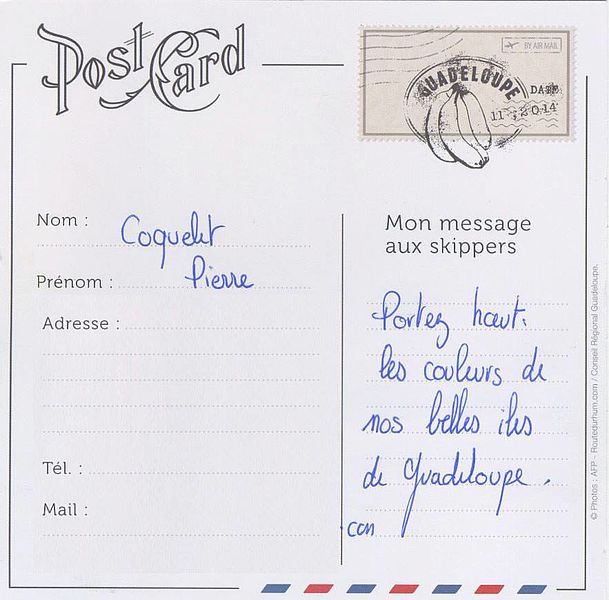 Post Card
BY AIR MAIL
GUADELOUPE
DATE
11 . 2014
Nom : Coquelet
Prénom : Pierre
Adresse :
Tél. :
Mail :
Mon message
aux skippers
Portez haut
les couleurs de
nos belles iles
de Guadeloupe.
© Photos : AFP - Routedurhum.com / Conseil Régional Guadeloupe.